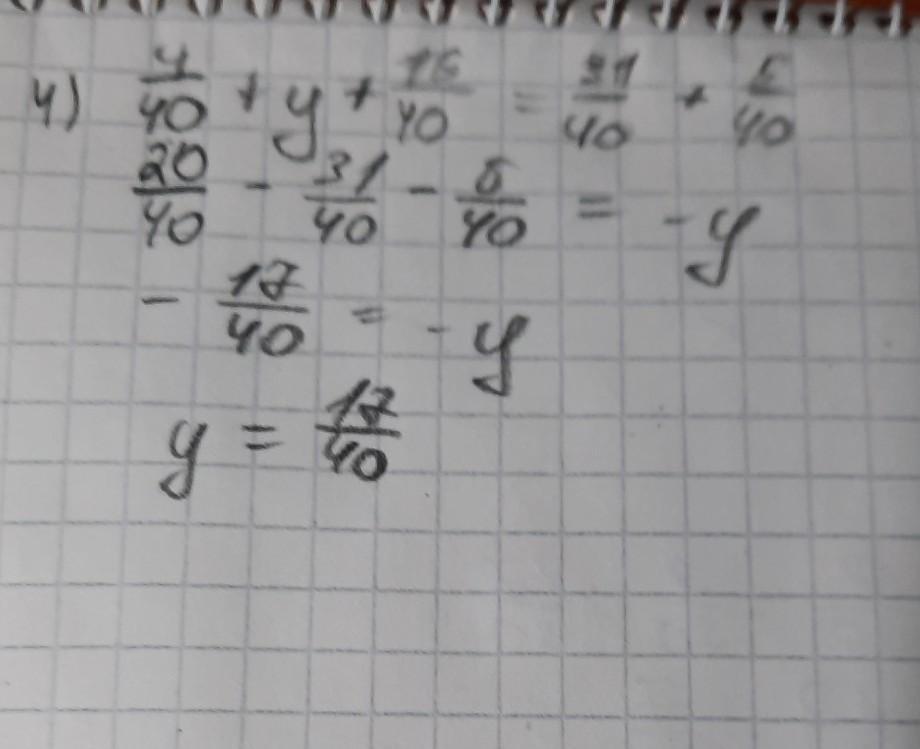 4) 4/40 + y + 16/40 = 31/40 + 6/40
20/40 - 31/40 - 6/40 = -y
- 17/40 = -y
y = 17/40